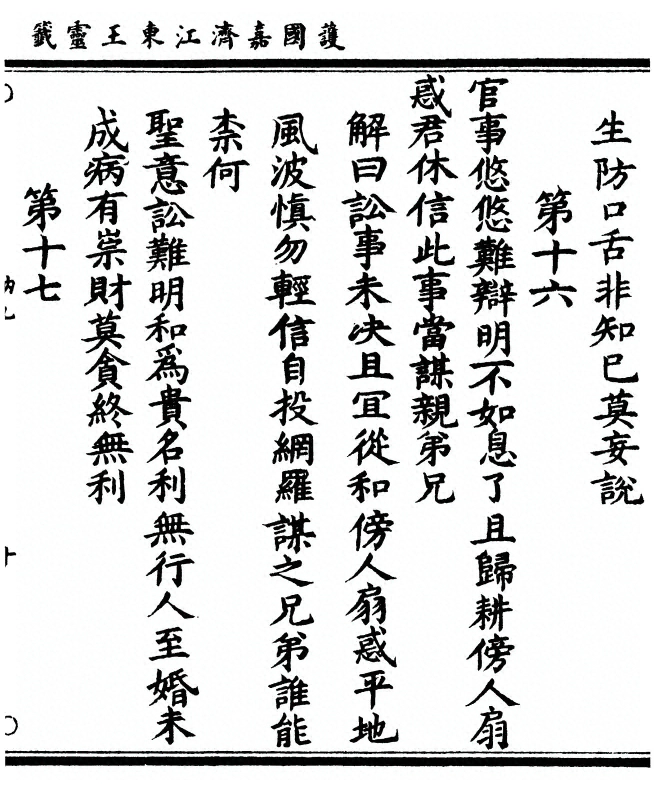 護國嘉濟江東王靈籤
生防口舌非知巳莫妄說
第十六
官事悠悠難辯明不如息了且歸耕傍人扇
惑君休信此事當謀親弟兄
解曰訟事未决且冝從和傍人扇惑平地
風波慎勿輕信自投網羅謀之兄弟誰能
柰何
聖意訟難明和爲貴名利無行人至婚未
成病有祟財莫貪終無利
第十七